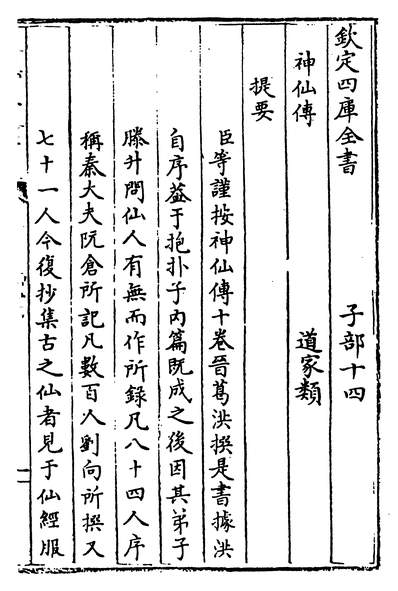 欽定四庫全書 子部十四
神仙傳 道家類
提要
臣等謹按神仙傳十卷晉葛洪撰是書據洪
自序葢于抱朴子内篇既成之後因其弟子
滕升問仙人有無而作所録凡八十四人序
稱秦大夫阮倉所記凡數百人劉向所撰又
七十一人今復抄集古之仙者見于仙經服